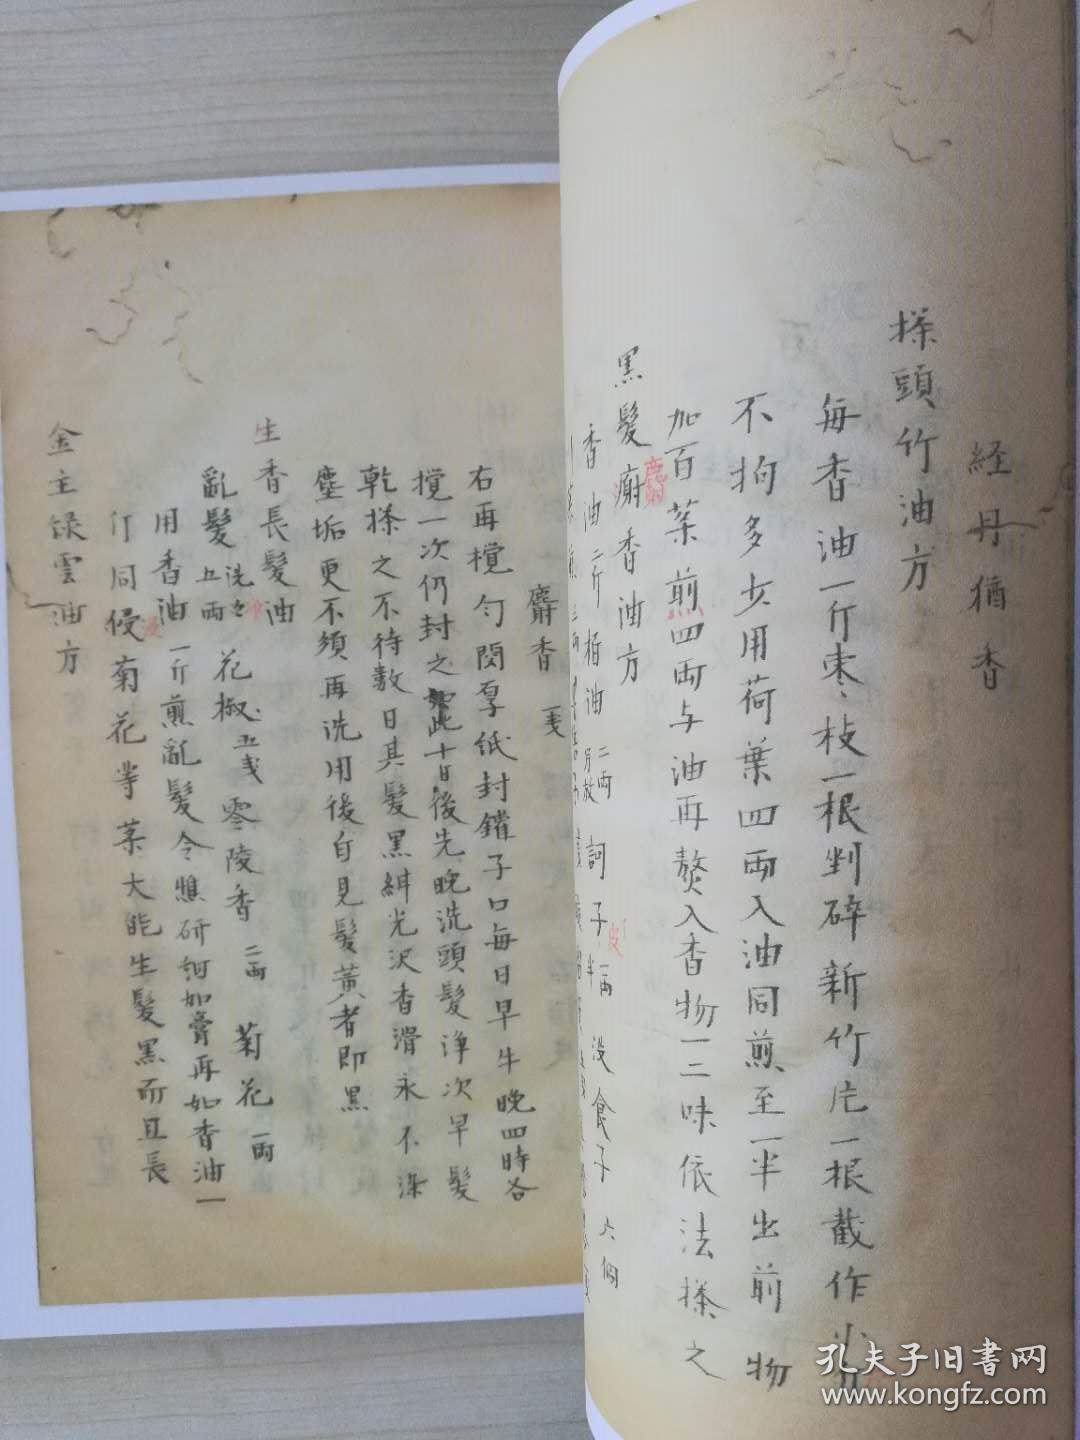 経丹犞香
搽頭竹油方
每香油一斤棗枝一根剉碎新竹片一根截作小
不拘多少用荷葉四兩入油同煎至一半出前物
加百茱煎四兩与油再熬入香物一二味依法搽之
黑髮廟香油方
麝
香油二斤柏油二兩另放訶子一兩半没食子六個
皮
麝香一戔
右再攪勻閉厚紙封鑵子口每日早午晚四時各
攪一次仍封之如此十日後先晚洗頭髮淨次早髮
乾搽之不待数日其髮黑紺光沢香滑永不染
塵垢更不須再洗用後自見髮黃者即黑
生香長髮油
亂髮洗净五兩 花椒五戔 零陵香二兩 菊花一兩
用香油一斤煎亂髮令燋研細如膏再如香油一
斤同侵菊花等茱大能生髮黑而且長
浸
金主绿雲油方
孔夫子旧書网
www.kongfz.com